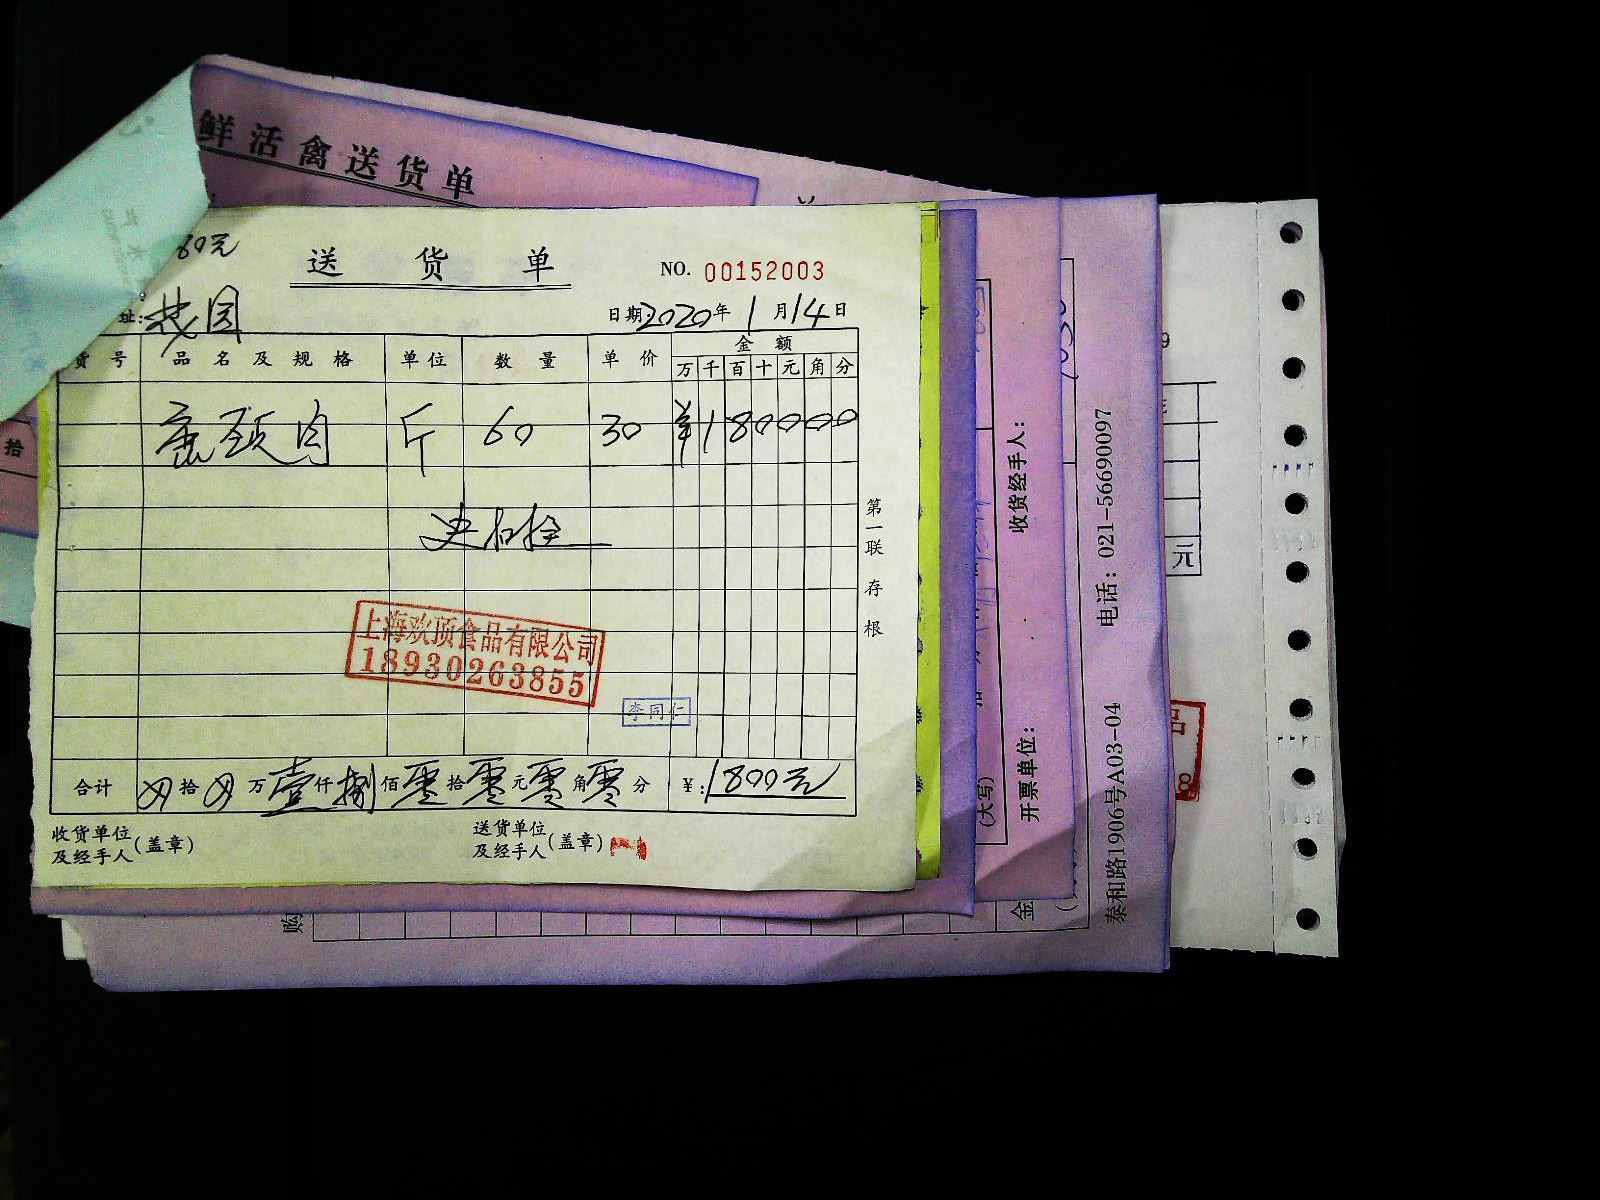 鲜活禽送货单
80元
送货单
NO. 00152003
址:
日期2020年1月14日
货号 品名及规格 单位 数量 单价 金额
万 千 百 十 元 角 分
颈肉 斤 60 30 ¥180000
第一联 存根
上海欢顶食品有限公司
18930263855
李同仁
合计 拾 万壹仟捌佰零拾零元零角零分 ¥:1800元
收货单位及经手人(盖章)
送货单位及经手人(盖章)
拾
收货经手人:
开票单位:
(大写)
金
购
电话: 021-56690097
泰和路1906号A03-04
9
元
品